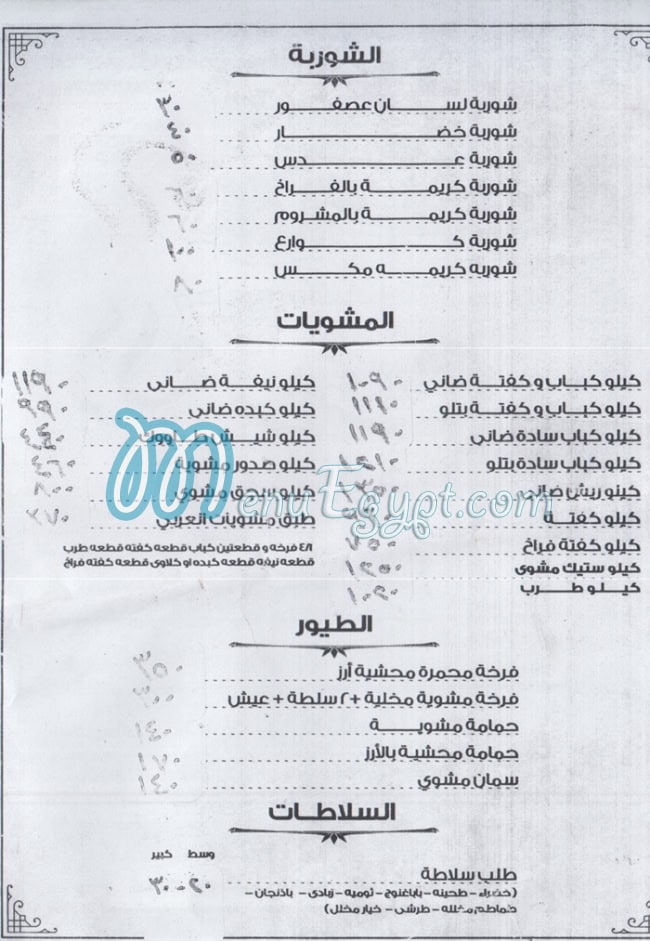 الشوربة
شوربة لسان عصفور
شوربة خضار
شوربة عدس
شوربة كريمة بالفراخ
شوربة كريمة بالمشروم
شوربة كوارع
شوربه كريمه مكس
المشويات
كيلو كباب و كفتة ضاني ١٠٩٠
كيلو كباب و كفتة بتلو ١١٩٠
كيلو كباب سادة ضانى ١١٩٠
كيلو كباب سادة بتلو
كيلو ريش ضاني
كيلو كفتة
كيلو كفتة فراخ
كيلو ستيك مشوى ١٢٥٠
كيلو طرب ١٠٢٠
كيلو نيفة ضانى ١١٩٠
كيلو كبده ضانى ٩٩٠
كيلو شيش طاووك
كيلو صدور مشوية
كيلو سجق مشوي
طبق مشويات العربي ٢٧٠
٤/١ فرخه و قطعتين كباب قطعه كفته قطعه طرب
قطعه نيفه قطعه كبده او كلاوى قطعه كفته فراخ
MenuEgypt.com
الطيور
فرخة محمرة محشية أرز ٣٥٠
فرخة مشوية مخلية +٢ سلطة + عيش ٣٠٠
حمامة مشوية ١٤٠
حمامة محشية بالأرز ١٧٠
سمان مشوي ١٤٠
السلاطات
وسط كبير
طلب سلاطة ٢٠-٣٠
(خضراء - طحينه - باباغنوج - ثوميه - زبادى - باذنجان -
طماطم مخلله - طرشى - خيار مخلل)